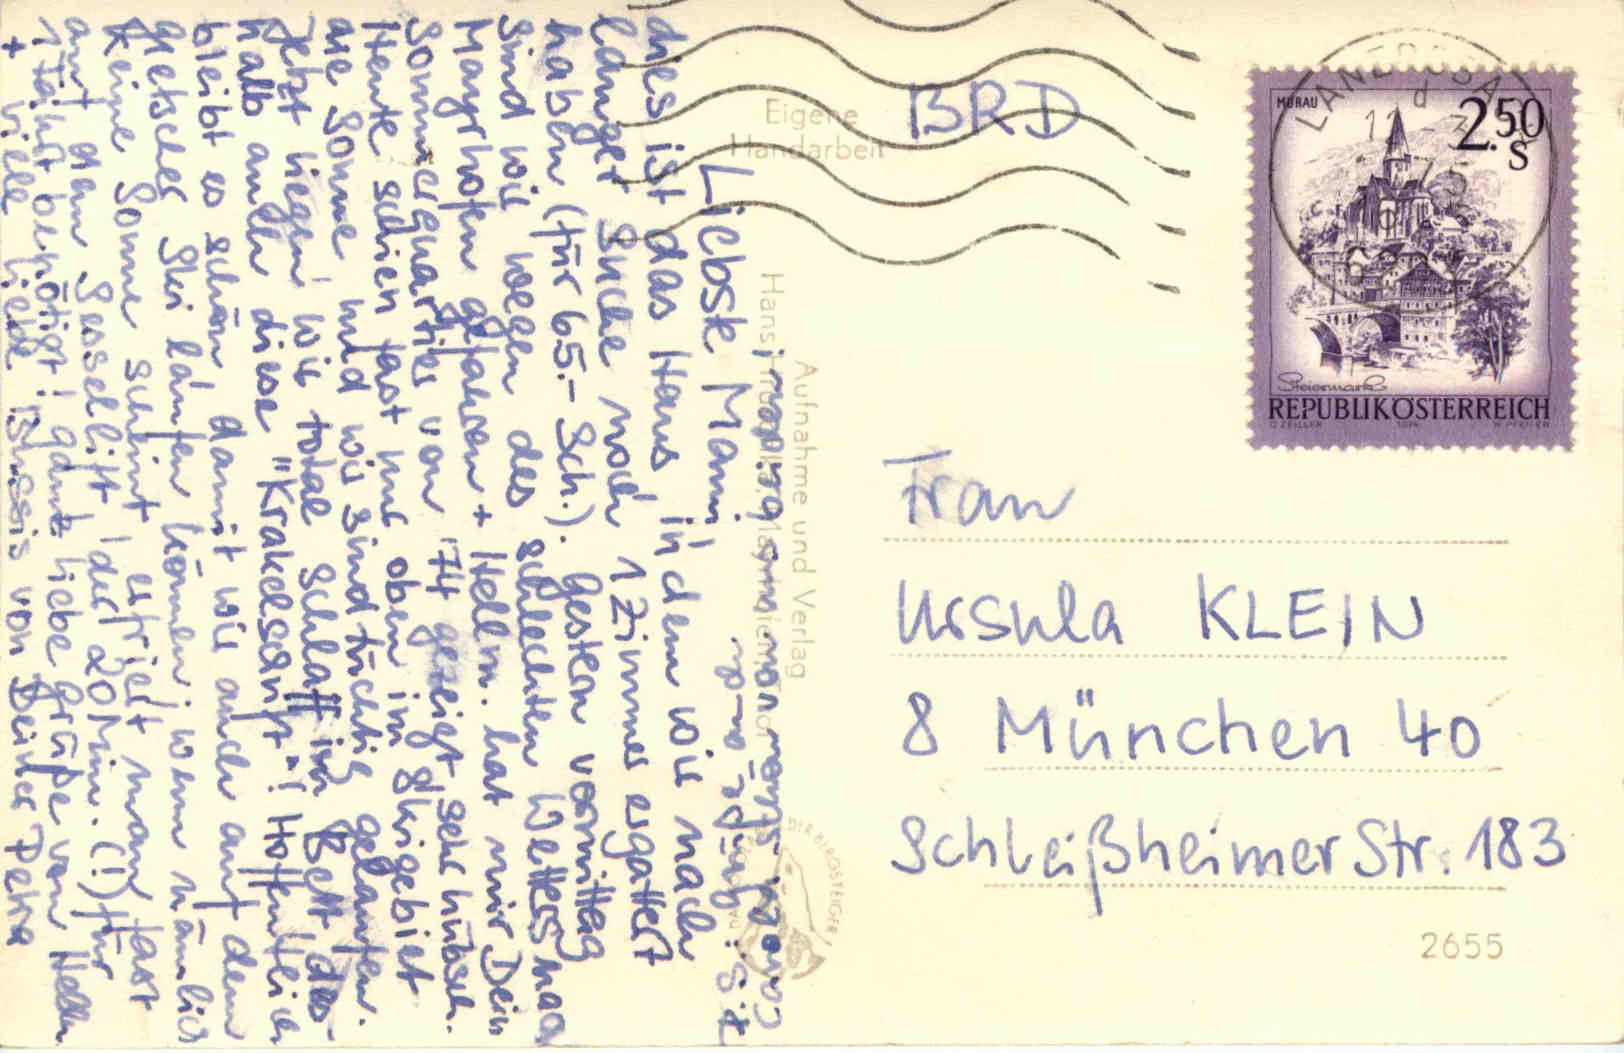 Liebste Mami!
dies ist das Haus in dem wir nach
langer Suche noch 1 Zimmer ergattert
haben (für 65.- Sch.). Gestern vormittag
sind wir wegen des schlechten Wetters nach
Mayrhofen gefahren + Hellm. hat mir Dein
Sommerquartier von '74 gezeigt sehr hübsch.
Heute schien fast nur oben im Skigebiet
die Sonne und wir sind tüchtig gelaufen.
Jetzt liegen wir total schlaff im Bett des-
halb auch diese "Krakelschrift"! Hoffentlich
bleibt es schön damit wir auch auf dem
Gletscher Ski laufen können; wenn nämlich
keine Sonne scheint erfriert man fast
auf dem Sessellift der 20 Min. (!) für
1 Fahrt benötigt! ganz liebe Grüße von Hellm
+ viele liebe Bussis von Deiner Petra
BRD
Eigene
Handarbeit
Aufnahme und Verlag
DER BERGSTEIGER
MURAU
2.50
S
Steiermark
REPUBLIK ÖSTERREICH
Frau
Ursula KLEIN
8 München 40
Schleißheimer Str. 183
2655